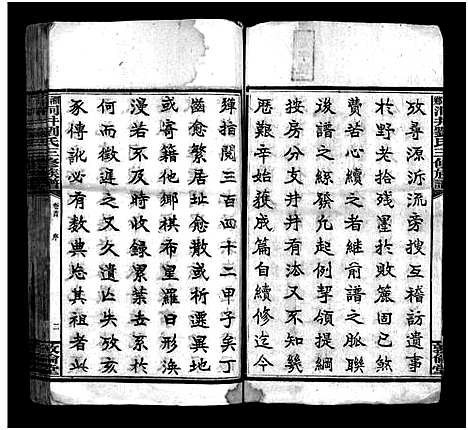 攷尋源泝流旁搜互稽訪遺事
於野老拾殘墨於敗簏固已煞
費苦心矣若之者維前譜之脈聯
後譜之綜發凡起例引
原原本本分支井井有條又不知幾
歷艱辛始克成篇自續修迄今
殫指閱三百四十二甲子矣丁
齒愈繁居址愈散或析遷異地
或寄籍他鄉棋布星羅日形渙
漫若不及時收錄累葉安系於
何而徵遲之又久遺亡失攷亥
豕傳訛必有數典忘其祖者此
湘鄉河井劉氏三修族譜
卷首
序
二
敦倫堂